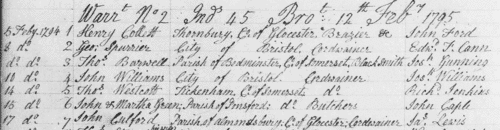 Warrt No 2 Ind 45 Brot 12th Feby 1795
5 Feby 1794 1 Henry Collett Thornbury, C. of Glocester Brazier & John Ford
8 do 2 Geo: Spurrier City of Bristol Cordwainer Edwd T. Cann
do do 3 Thos Barwell Parish of Bedminster, C. of Somerset, Black Smith Jos: Gunning
10 do 4 John Williams City of Bristol Cordwainer Jos: Williams
14 do 5 Thos Westcott Tickenham, C. of Somerset do Richd Jenkins
16 do 6 John & Martha Green, Parish of do Butchers John Caple
17 do 7 John Parish of Almondsbury, C. of Glocester, Cordwainer Jas Lewis